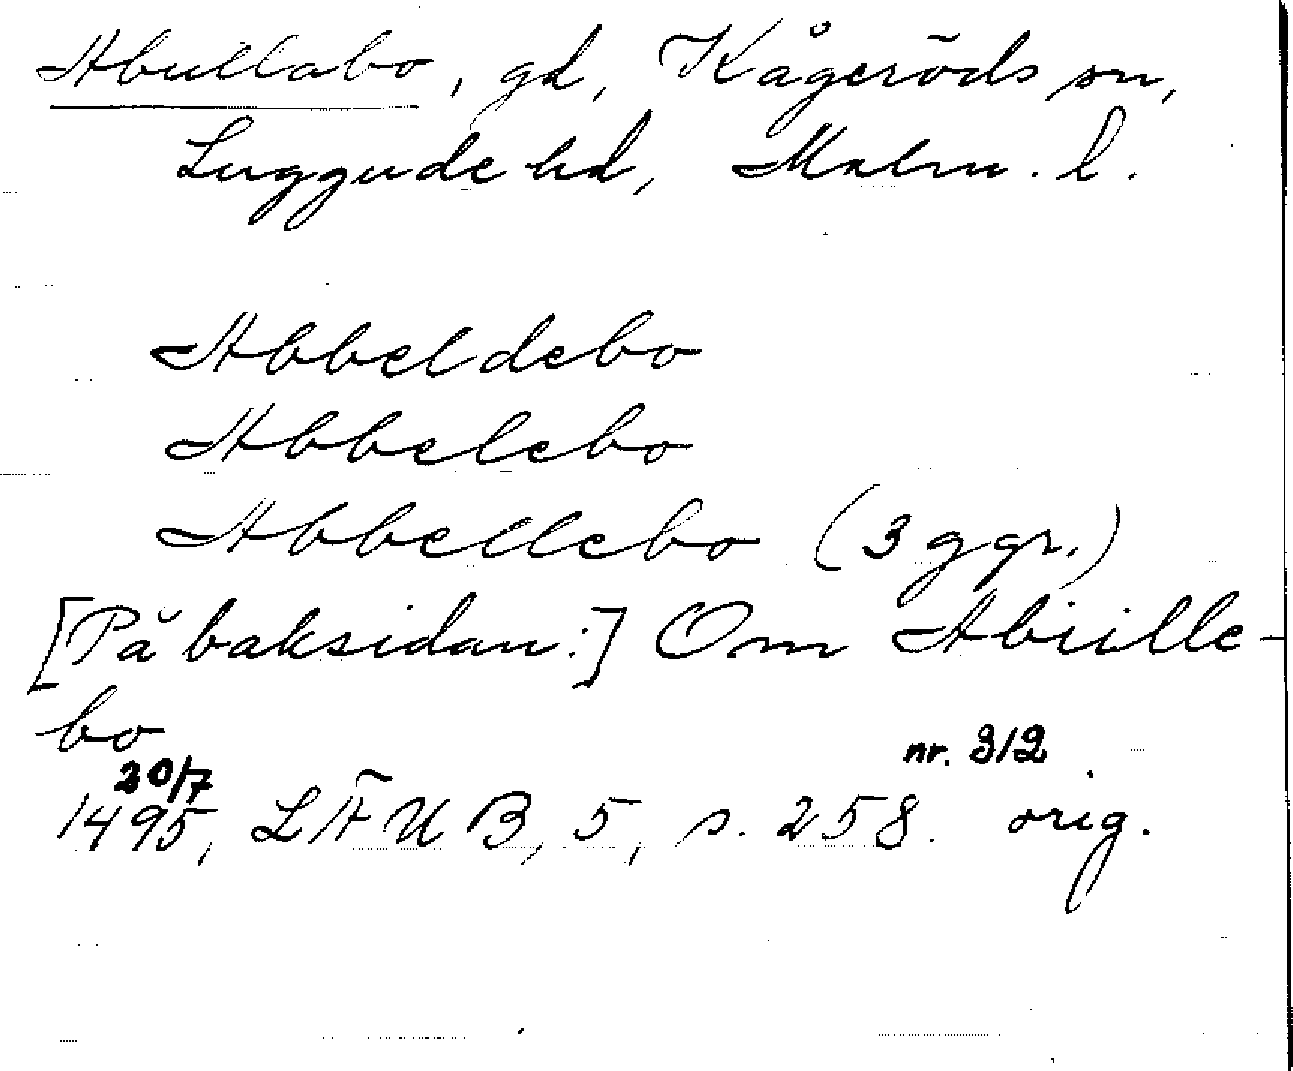 Abullabo, gd, Kågeröds sn,
Luggude hd, Malm. l.
Abbeldebo
Abbelebo
Abbellebo (3 ggr.)
[På baksidan:] Om Abiille-
bo
20/7 nr. 312
1495, LÄUB, 5, s. 258. orig.